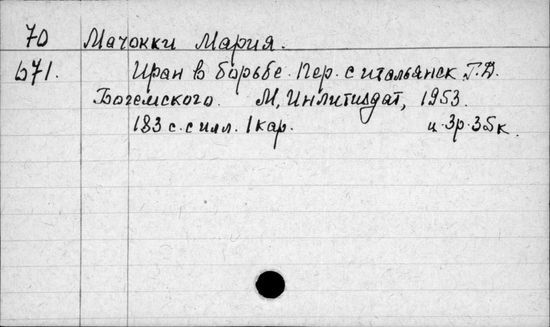 70 Мачокки Мария.
671. Иран в борьбе. Пер. с итальянск. Г.Д.
Богемского. М, Инлитиздат, 1953.
183 с. с илл. 1 кар. ц. 3р. 35к.